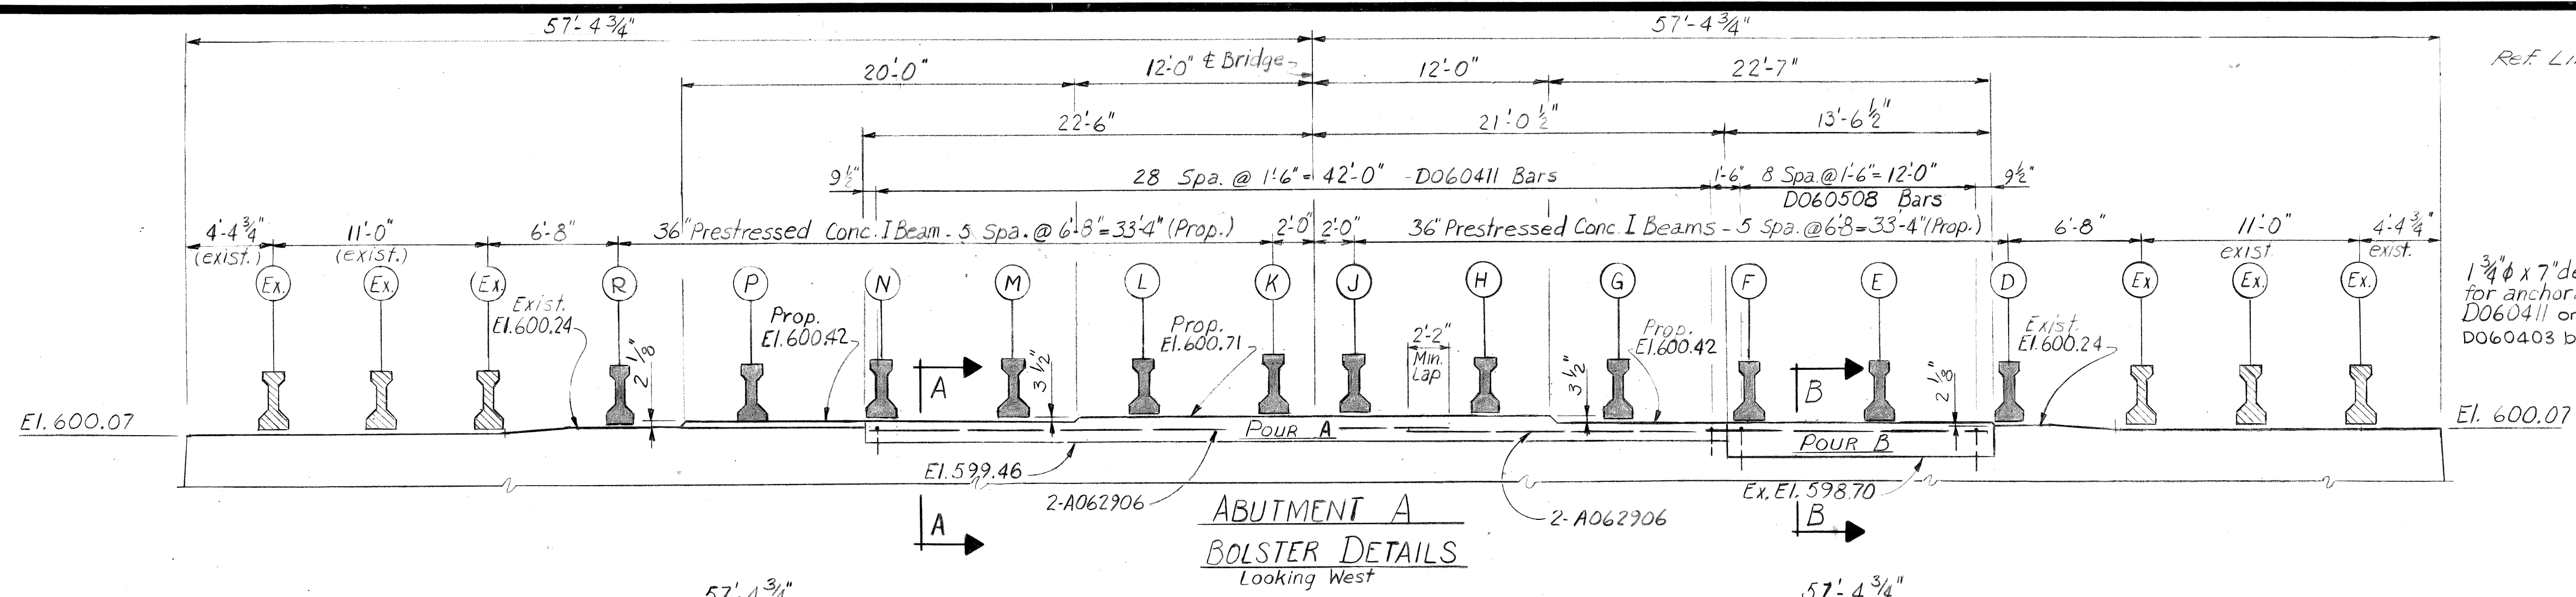 57'-4 3/4"
57'-4 3/4"
20'-0"
12'-0"
℄ Bridge
12'-0"
22'-7"
Ref.
22'-6"
21'-0 1/2"
13'-6 1/2"
9 1/2"
28 Spa. @ 1'-6" = 42'-0" - D060411 Bars
1'-6"
8 Spa.@1'-6"=12'-0"
9 1/2"
D060508 Bars
4'-4 3/4"
(exist.)
11'-0"
(exist.)
6'-8"
36" Prestressed Conc. I Beam - 5 Spa. @ 6'-8"=33'-4" (Prop.)
2'-0"
2'-0"
36" Prestressed Conc. I Beams - 5 Spa.@6'-8=33'-4"(Prop.)
6'-8"
11'-0"
exist.
4'-4 3/4"
exist.
Ex.
Ex.
Ex.
R
P
N
M
L
K
J
H
G
F
E
D
Ex
Ex.
Ex.
1 3/4"φ x 7"
for
D060411 or
D060403
Exist.
El.600.24
Prop.
El.600.42
Prop.
El.600.71
2'-2"
Min.
Lap
Prop.
El.600.42
Exist.
El.600.24
2 1/8"
A
3 1/2"
3 1/2"
B
2 1/8"
El. 600.07
El. 600.07
POUR A
POUR B
El.599.46
2-A062906
2-A062906
Ex. El. 598.70
A
B
ABUTMENT A
BOLSTER DETAILS
Looking West
57'-4 3/4"
57'-4 3/4"